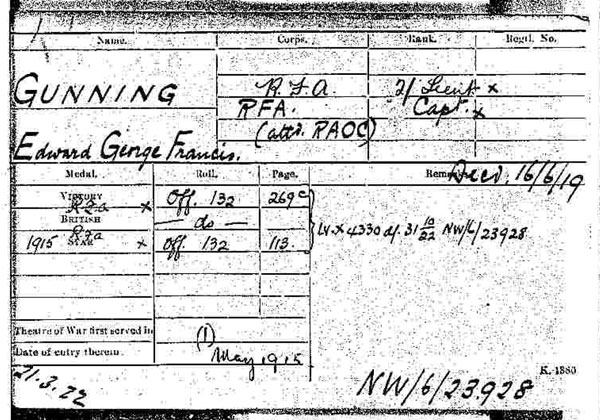 Name. Corps. Rank. Regtl. No.
GUNNING R.F.A. 2/Lieut x
RFA. Capt. x
(attd. RAOC)
Edward George Francis.
Medal. Roll. Page. Remarks Decd. 16/6/19
VICTORY RFA x Off. 132 269c
BRITISH do
RFA
1915 STAR x Off 132 113. IV.x 4330 d/ 31 10/22 NW/6/23928
Theatre of War first served in (1)
Date of entry therein. May 1915
K. 1380
21.3.22 NW/6/23928